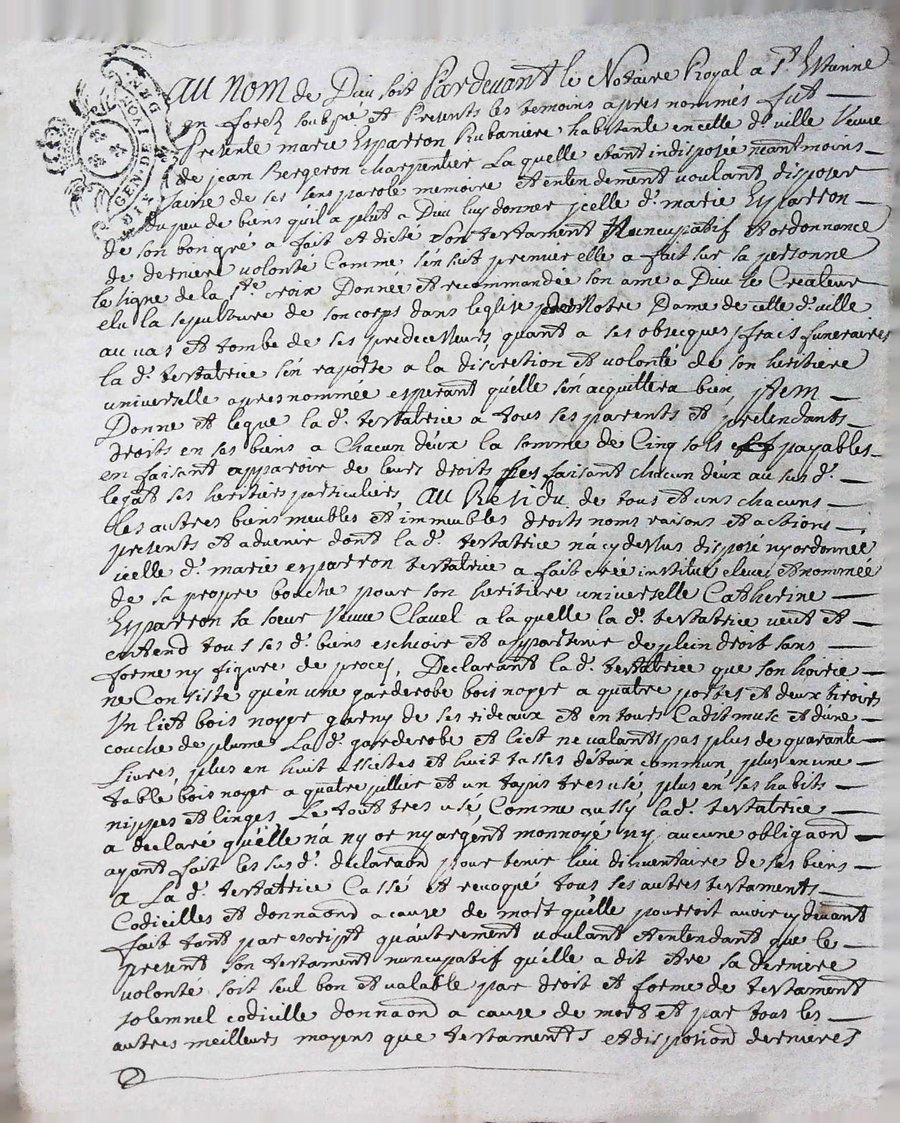 GEN. DE LION
DEN
Au nom de Dieu soit Pardevant le Notaire Royal a St. Etienne
en forez soubsné et Presents les temoins apres nommés fut
Presente marie Esparron Rubaniere habitante en celle d. ville Veuve
de jean Bergeron charpentier La quelle etant indisposée neantmoins
saine de ses sens parole memoire et entendement voulant disposer
du peu de biens quil a plut a Dieu luy donner jcelle d. marie Esparron
de son bon gré a fait et dicté son testament Nuncupatif et ordonnance
de derniere volonté Comme s'en suit premier elle a fait sur sa personne
le signe de la ste. croix Donnée et recommandée son ame a Dieu le Createur
elu la sepulture de son corps dans leglise Notre Dame de celle d. ville
au vas et tombe de ses predecesseurs, quant a ses obsecques, frais funeraires
la d. testatrice s'en raporte a la discretion et volonté de son heritiere
universelle apres nommée esperant quelle s'en acquittera bien, jtem
Donne et legue la d. testatrice a tous ses parents et pretendants
droits en ses biens a chacun deux la somme de Cinq sols payables
en faisant apparoir de leurs droits les faisant chacun deux au sus d.
legat ses heritiers particuliers, au Residu de tous et uns chacuns
les autres biens meubles et immeubles droits noms raisons et actions
presents et advenir dont la d. testatrice n'a cy dessus disposé ny ordonnée
icelle d. marie esparron testatrice a fait crée institué eleue et nommée
de sa propre bouche pour son heritiere universelle Catherine
Esparron sa soeur Veuve Clavel a la quelle la d. testatrice veut et
entend tous ses d. biens eschoir et appartenir de plein droit sans
forme ny figure de proces, Declarant la d. testatrice que son hoirie
ne Consiste qu'en une garderobe bois noyer a quatre portes et deux tiroirs
Un lict bois noyer garny de ses rideaux et entours Cadit musc et d'une
couche de plume La d. garderobe et lict ne valants pas plus de quarante
Livres, plus en huit assietes et huit tasses detain commun, plus en une
table bois noyer a quatre pillier et un tapis tres usé, plus en ses habits
nippes et linges, Le tout tres usé Comme aussy la d. testatrice
a declaré quelle n'a ny or ny argent monnoyé ny aucune obligaond
ayant fait les sus d. declaraon pour tenir lieu d'inventaire de ses biens
a La d. testatrice Cassé et revoqué tous ses autres testaments
Codicilles et donnaond a cause de mort qu'elle pourroit avoir cy devant
fait tant par escript qu'autrement voulant et entendant que le
present son testament nuncupatif qu'elle a dit etre sa derniere
volonté soit seul bon et valable par droit et forme de testament
solemnel codicille donnaond a cause de mort et par tous les
autres meilleurs moyens que testaments et disposiond dernieres